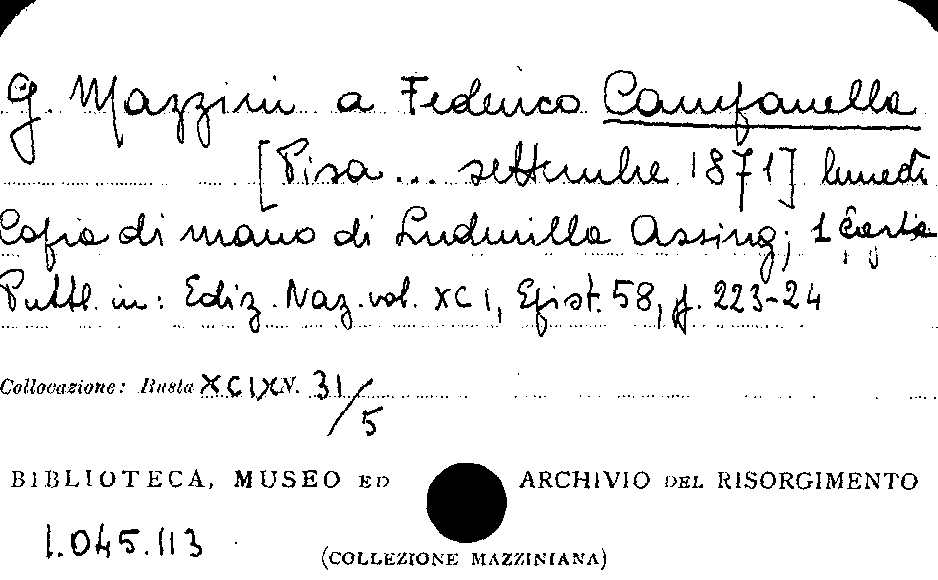 G. Mazzini a Federico Campanella
[Pisa ... settembre 1871] lunedì
Copia di mano di Ludmilla Assing; 1 carta
Pubbl. in: Ediz. Naz. vol. XCI, Epist. 58, p. 223-24
Collocazione: Busta XCIX N. 31/5
BIBLIOTECA, MUSEO ED ARCHIVIO DEL RISORGIMENTO
1.045.113
(COLLEZIONE MAZZINIANA)